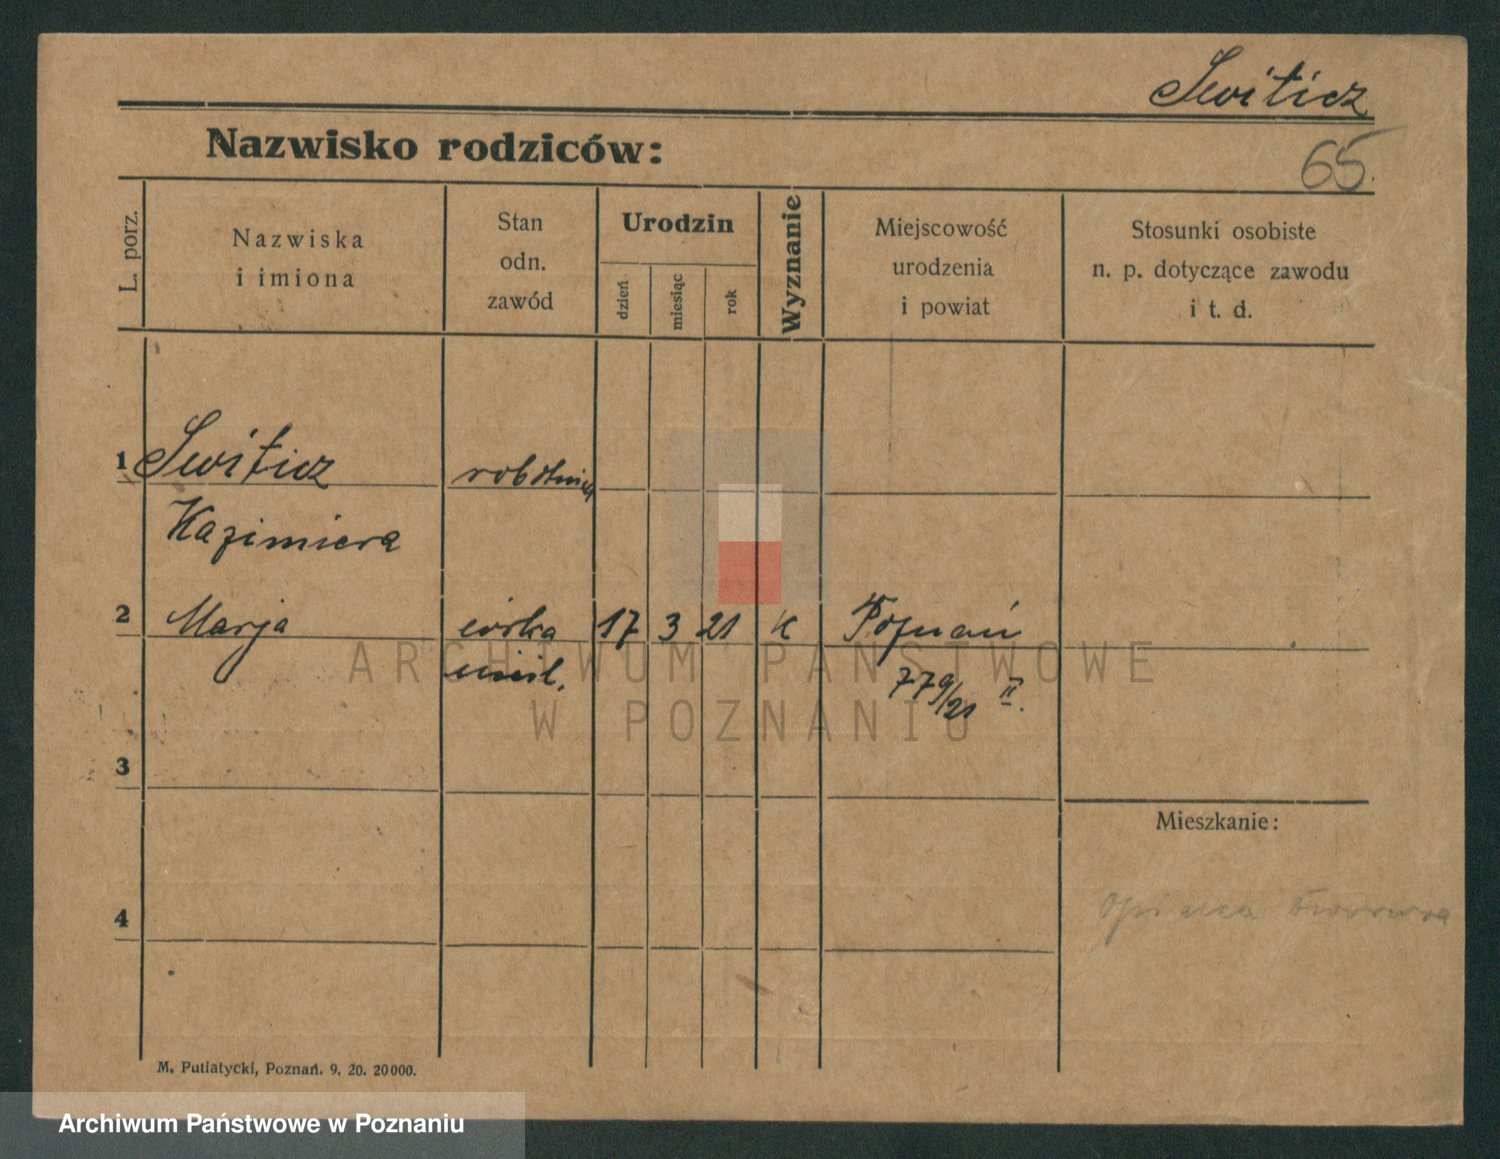 Switicz
Nazwisko rodziców:
65.
L. porz.
Nazwiska
i imiona
Stan
odn.
zawód
Urodzin
dzień
miesiąc
rok
Wyznanie
Miejscowość
urodzenia
i powiat
Stosunki osobiste
n. p. dotyczące zawodu
i t. d.
1 Switicz robotnica
Kazimiera
2 Marja córka 17 3 21 K Poznań
779/21 II.
3
Mieszkanie:
4
M. Putiatycki, Poznań. 9. 20. 20000.
ARCHIWUM PAŃSTWOWE
W POZNANIU
Archiwum Państwowe w Poznaniu